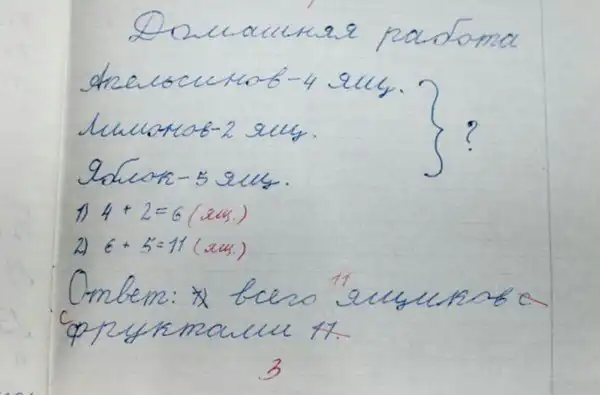 Домашняя работа
Апельсинов-4 ящ.
Лимонов-2 ящ.
Яблок-5 ящ.
?
1) 4 + 2=6 (ящ.)
2) 6 + 5=11 (ящ.)
11
Ответ: всего ящиков с
с фруктами 11.
3